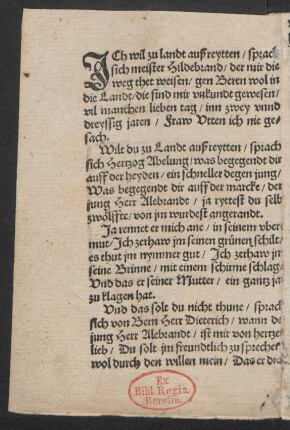 ICh wil zu landt außreytten / sprach
sich meister Hildebrand / der mir die
weg thet weisen / gen Beren wol in
die Landt / die sind mir vnkundt gewesen /
vil manchen lieben tag / inn zwey vnnd
dreyssig jaren / Fraw Vtten ich nie ge-
sach.
Wilt du zu Landt außreytten / sprach
sich Hertzog Abelung / was begegendt dir
auff der heyden / ein schneller degen jung /
Was begegendt dir auff der marcke / der
jung Herr Alebrandt / ja ryttest du selb
zwölffte / von jm wurdest angerandt.
Ja rennet er mich ane / in seinem vber
mut / Ich zerhaw jm seinen grünen schilt /
es thut jm nymmer gut / Ich zerhaw jm
seine Brinne / mit einem schirme schlag
Vnd das er seiner Mutter / ein gantz ja
zu klagen hat.
Vnd das solt du nicht thune / sprac
sich von Bern Herr Dieterich / wann de
jung Herr Alebrandt / ist mir von hertze
lieb / Du solt jm freundtlich zu spreche
wol durch den willen mein / Das er dic
Ex
Bibl. Regia
Berolin.